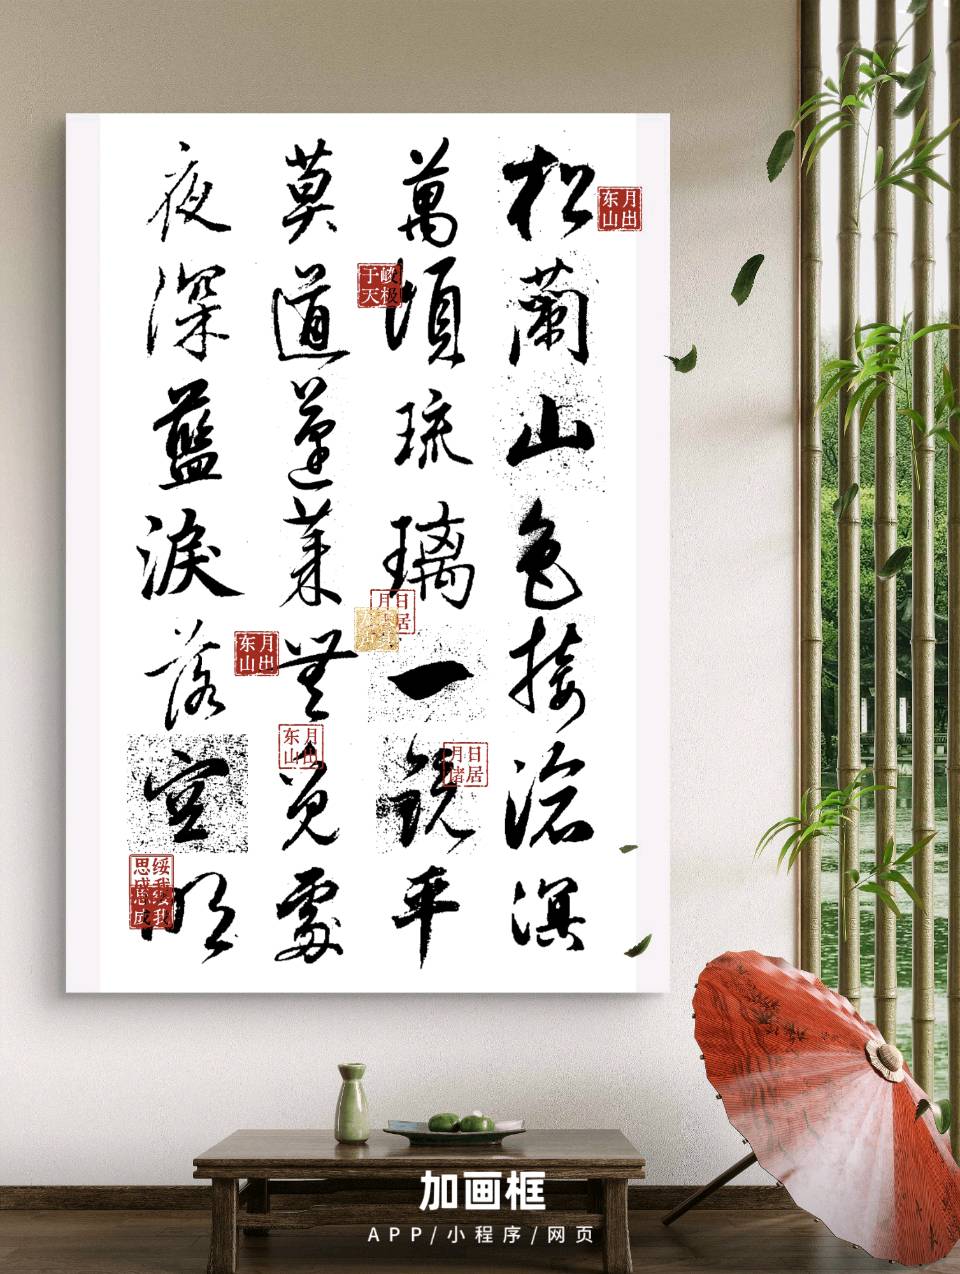 松蘭山色接滄溟
萬頃琉璃一鏡平
莫道蓬萊無覓處
夜深藍淚落空明
月出东山
峻极于天
日居月
月出东山
月出东山
日居月诸
绥我思成
绥我思成
加画框
APP/小程序/网页